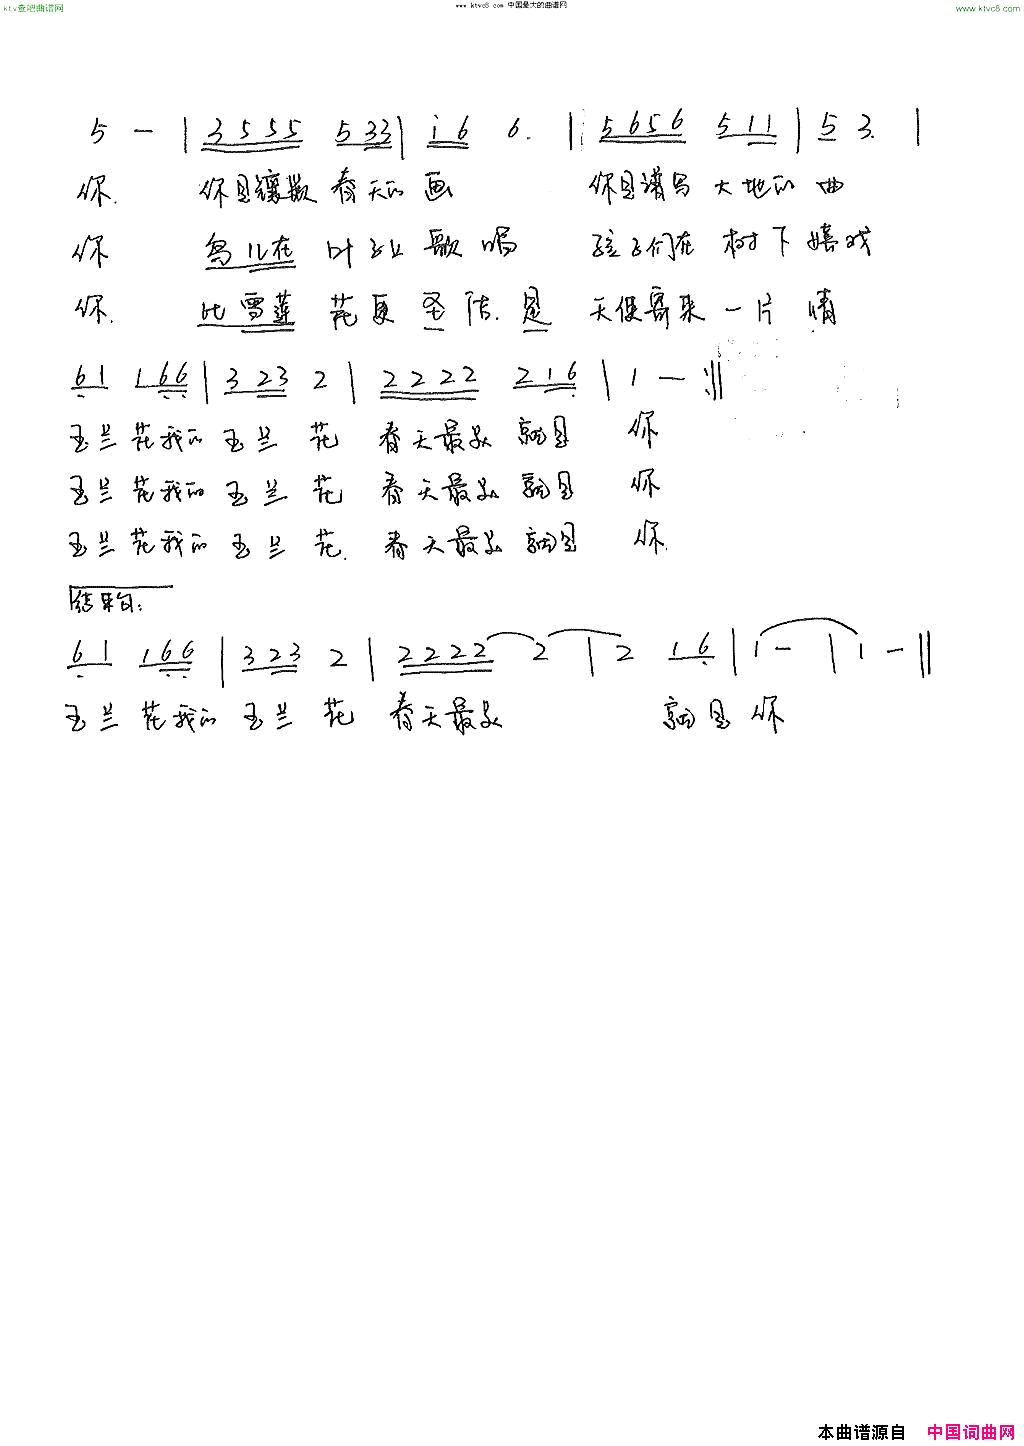 ktv查吧曲谱网
www ktvc8 com 中国最大的曲谱网
www.ktvc8.com
5 — | 3 5 5 5 5 3 3 | i 6 6. | 5 6 5 6 5 1 1 | 5 3. |
你. 你是 春天的画 你是谱写大地的曲
你 鸟儿在叶 歌唱 孩子们在树下嬉戏
你. 比雪莲花更圣洁.是 天使寄来一片情
6 1 1 6 6 | 3 2 3 2 | 2 2 2 2 2 1 6 | 1 — :||
玉兰花我的玉兰花 春天最美就是 你
玉兰花我的玉兰花 春天最美就是 你
玉兰花我的玉兰花. 春天最美就是 你.
结束句:
6 1 1 6 6 | 3 2 3 2 | 2 2 2 2 2 | 2 1 6 | 1 — | 1 — ||
玉兰花我的玉兰花 春天最美 就是你
本曲谱源自 中国词曲网